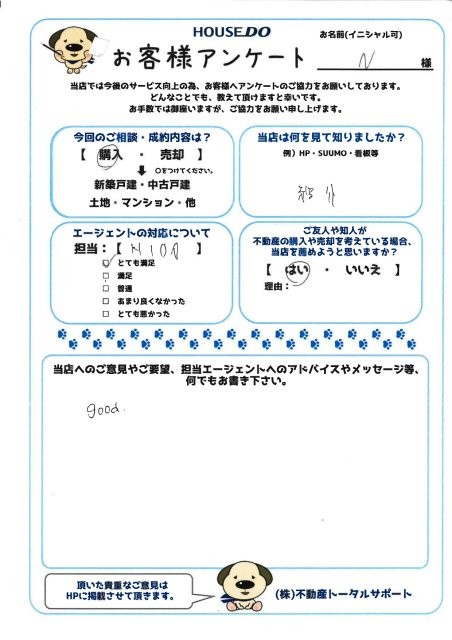 HOUSEDO
お客様アンケート
お名前(イニシャル可)
N 様
当店では今後のサービス向上の為、お客様へアンケートのご協力をお願いしております。
どんなことでも、教えて頂けますと幸いです。
お手数では御座いますが、ご協力をお願い申し上げます。
今回のご相談・成約内容は?
【 購入 ・ 売却 】
○をつけてください。
新築戸建・中古戸建
土地・マンション・他
当店は何を見て知りましたか?
例）HP・SUUMO・看板等
紹介
エージェントの対応について
担当:【 】
とても満足
満足
普通
あまり良くなかった
とても悪かった
ご友人や知人が
不動産の購入や売却を考えている場合、
当店を薦めようと思いますか?
【 はい ・ いいえ 】
理由:
当店へのご意見やご要望、担当エージェントへのアドバイスやメッセージ等、
何でもお書き下さい。
good.
頂いた貴重なご意見は
HPに掲載させて頂きます。
(株)不動産トータルサポート